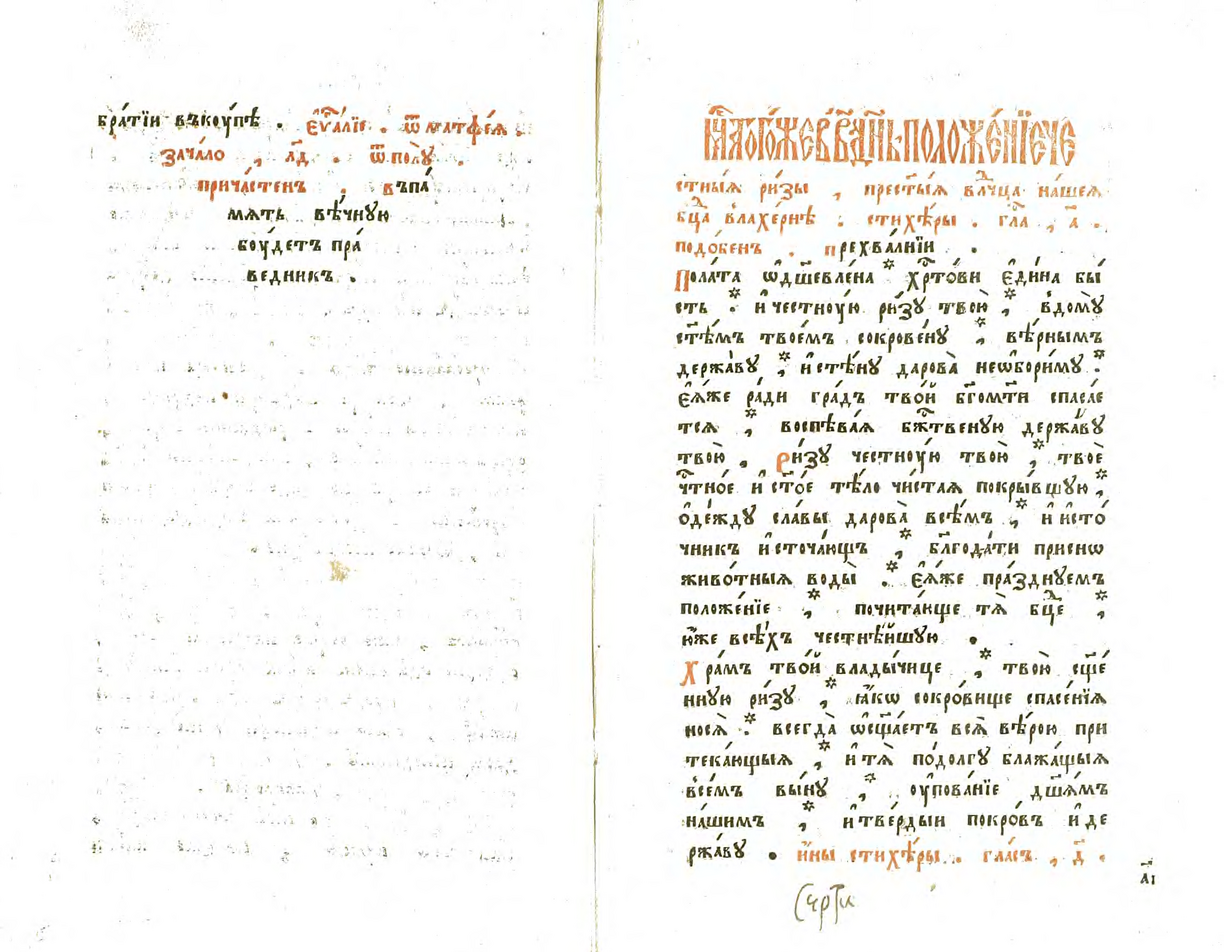 бра́тїи въкоу́пѣ . е҆ѵⷢ҇а́лїе . ѿ матфе́ѧ .
зача́ло , л҃д . ѿ полꙋ̀ .
прича́стенъ . въпа́
мѧть вѣ́чнꙋю
боу́детъ пра́
ведникъ .
положе́нїе че
стны́ѧ ри́зы , прест҃ы́ѧ влⷣчца на́шеѧ
бц҃а влахе́рнѣ : стихѣ́ры . гла́ , а҃ .
подо́бенъ . прехва́лнїи .
Пола́та ѡ҆дш҃евле́на * хрⷭ҇то́ви є҆ди́на бы́
сть * и҆ честноу́ю ри́зꙋ твою̀ * вдомꙋ̀
ст҃ѣмъ твое́мъ сокрове́нꙋ , * вѣ́рнымъ
держа́вꙋ , * и҆ стѣ́нꙋ дарова̀ неѡ҆бори́мꙋ . *
є҆ѧ́же ра́ди гра́дъ тво́й бг҃омт҃и спаса́е
тсѧ , * воспѣва́ѧ бж҃твенꙋю держа́вꙋ
твою̀ . Ри́зꙋ честноу́ю твою̀ , * твоѐ
чⷭ҇тно́е и҆ ст҃о́е тѣ́ло чи́стаѧ покры́вшꙋю , *
ѻ҆де́ждꙋ сла́вы дарова̀ всѣ́мъ , * и҆ и҆сто́
чникъ и҆сточа́ющъ , * бл҃года́ти присно
живо́тныѧ воды̀ . * Є҆ѧ́же пра́зднꙋемъ
положе́нїе , * почита́юще тѧ̀ бц҃е , *
ю҆́же всѣ́хъ честнѣ́йшꙋю .
Хра́мъ тво́й влады́чице , * твою̀ сщ҃е́
ннꙋю ри́зꙋ , * ꙗ҆́кѡ сокро́вище спасе́нїѧ
носѧ̀ . * всегда̀ ѡ҆сщ҃а́етъ всѧ̀ вѣ́рою при
тека́ющыѧ , * и҆ тѧ̀ подо́лгꙋ блажа́щыѧ
всѣ́мъ вы́нꙋ , * оу҆пова́нїе дш҃а́мъ
на́шимъ , * и҆ тве́рдыи покро́въ и҆ де
ржа́вꙋ . и҆́ны стихѣ́ры . гла́съ , д҃ .
а҃і